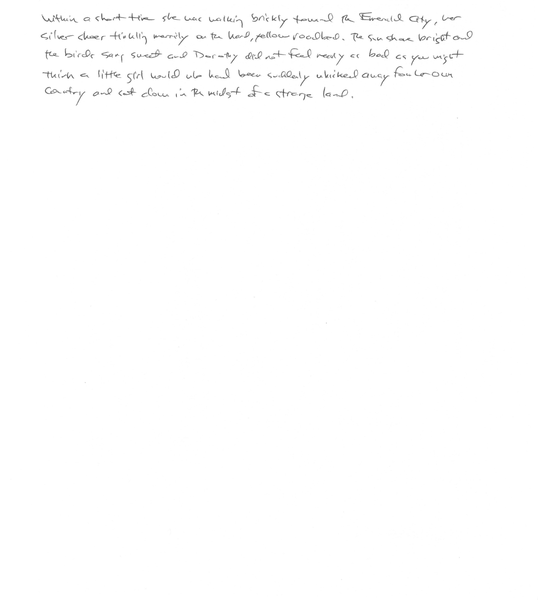 Within a short time she was walking briskly toward the Emerald City, her
silver shoes tinkling merrily on the hard, yellow roadbed. The sun shone bright and
the birds sang sweet and Dorothy did not feel nearly as bad as you might
think a little girl would who had been suddenly whisked away from her own
country and set down in the midst of a strange land.